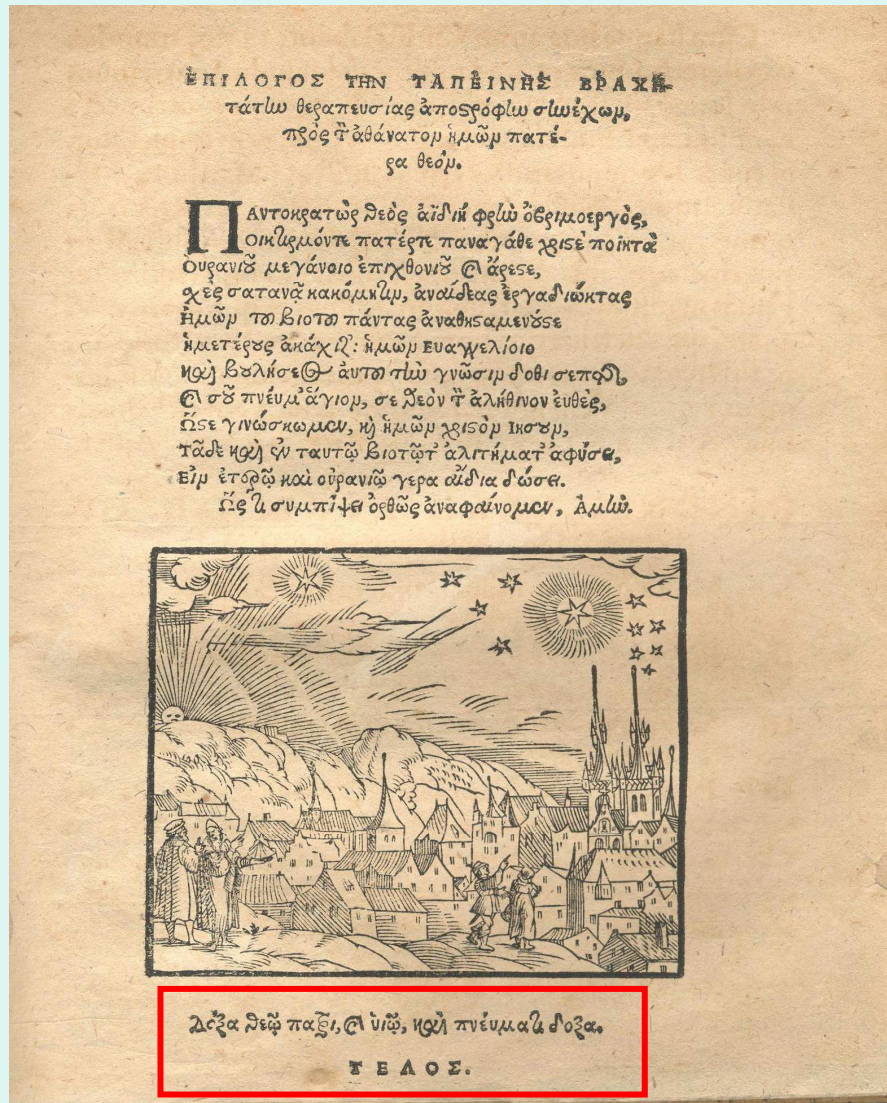 ἘΠΙΛΟΓΟΣ ΤΗΝ ΤΑΠΕΙΝΗΣ ΒΡΑΧΗ-
τάτην θεραπευσίας ἀποστρόφην συνέχων,
πρὸς τὸν ἀθάνατον ἡμῶν πατέ-
ρα θεόν.
ΠΑντοκρατὼρ θεὸς ἀϊδιη φρὴν ὀβριμοεργὸς,
Οικτιρμόντε πατέρτε παναγάθε χριστὲ
Ουρανιοῦ μεγάνοιο ἐπιχθονιοῦ καὶ ἄρεστε,
σατανᾶ κακόμητιν, ἀναίδεας ἐργαδιώκτας
Ημῶν του βιοτου πάντας
ἡμετέρους ἀκάχιζ: ἡμῶν Ευαγγελίοιο
καὶ βουλήσεος ἀυτου τὴν γνῶσιν δοθι
καὶ σοῦ πνέυμ' ἅγιον, σε θεὸν τὸν ἀλήθινον ἐυθὲς,
Ὥστε γινώσκωμεν, καὶ ἡμῶν χριστὸν Ιησουν,
Τᾶδε καὶ ἐν ταυτῶ βιοτῶτ' ἀλιτήματ' ἀφύσει,
Ειν ἑτορῶ καὶ οὐρανιῶ γερα ἀΐδια δώσει.
Ὥς τι συμπίψει ὀρθῶς ἀναφαίνομεν, Ἀμὴν.
Δόξα θεῷ πατρι, καὶ ὑιῷ, καὶ πνέυματι δοξα.
ΤΕΛΟΣ.